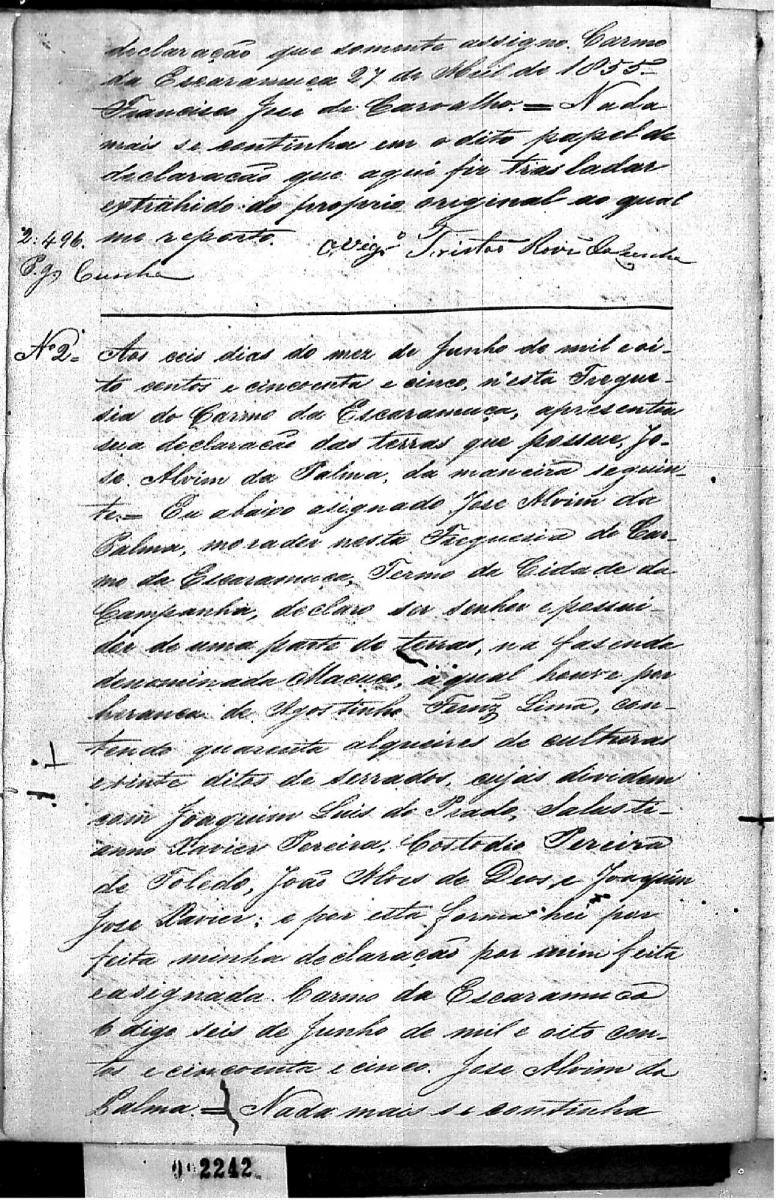 declaração que somente assigno. Carmo
da Escaramuça 27 de Abril de 1855=
Francisco Jose de Carvalho. = Nada
mais se continha em o dito papel de
declaração que aqui fiz trasladar
extrahido do proprio original ao qual
2:496. me reporto. O Vigº Tristão
P.g. Cunha
Nº 2= Aos ceis dias do mez de Junho de mil e oi-
to centos e cincoenta e cinco, n'esta Fregue-
sia do Carmo da Escaramuça, apresentou
sua declaração das terras que possue, Jo-
se Alvim da Palma, da maneira seguin-
te.= Eu abaixo asignado Jose Alvim da
Palma, morador nesta Freguesia do Car-
mo da Escaramuça, Termo da Cidade da
Campanha, declaro ser senhor e possui-
dor de uma parte de terras, na fasenda
denominada Macuco, a qual houve por
herança de Agostinho Frnz Lima, con-
tendo quarenta alqueires de culturas
e vinte ditos de serrados, cujas dividem
com Joaquim Luis do Prado, Salusti-
anno Xavier Pereira, Costodio Pereira
de Toledo, João Alves de Deos, e Joaquim
Jose Xavier; e por esta forma hei por
feita minha declaração por mim feita
e asignada. Carmo da Escaramuca
6 digo seis de Junho de mil e oito cen-
tos e cincoenta e cinco. Jose Alvim da
Palma. = Nada mais se continha
2242